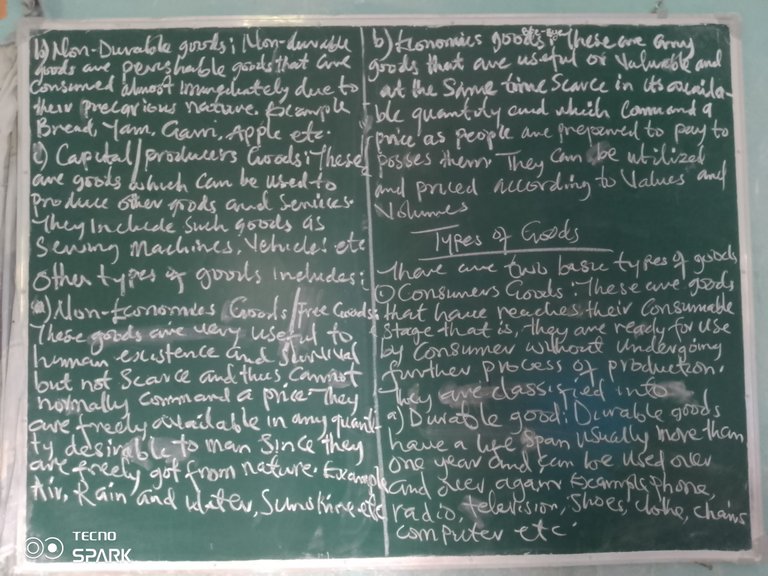 b) Non-Durable goods; Non-durable
goods are perishable goods that are
consumed almost immediately due to
their precarious nature. Example
Bread, Yam, Garri, Apple etc.
c) Capital/producers Goods: These
are goods which can be used to
produce other goods and services.
They include such goods as
Sewing Machines, Vehicle: etc
Other types of goods includes:
a) Non-Economics Goods/Free Goods:
These goods are very useful to
human existence and survival
but not scarce and thus cannot
normally command a price. They
are freely available in any quanti-
ty desirable to man since they
are freely got from nature. Example
Air, Rain and water, Sunshine etc
b) Economics goods: These are any
goods that are useful or valuable and
at the same time scarce in its availa-
ble quantity and which command a
price as people are prepared to pay to
posses them. They can be utilized
and priced according to values and
volumes
Types of Goods
There are two basic types of goods
Consumers Goods: These are goods
that have reaches their consumable
stage that is, they are ready for use
by consumer without undergoing
further process of production.
They are classified into
a) Durable good: Durable goods
have a life span usually more than
one year and can be used over
and over again Examples phone,
radio, television, shoes, clothe, chairs
computer etc.
TECNO
SPARK